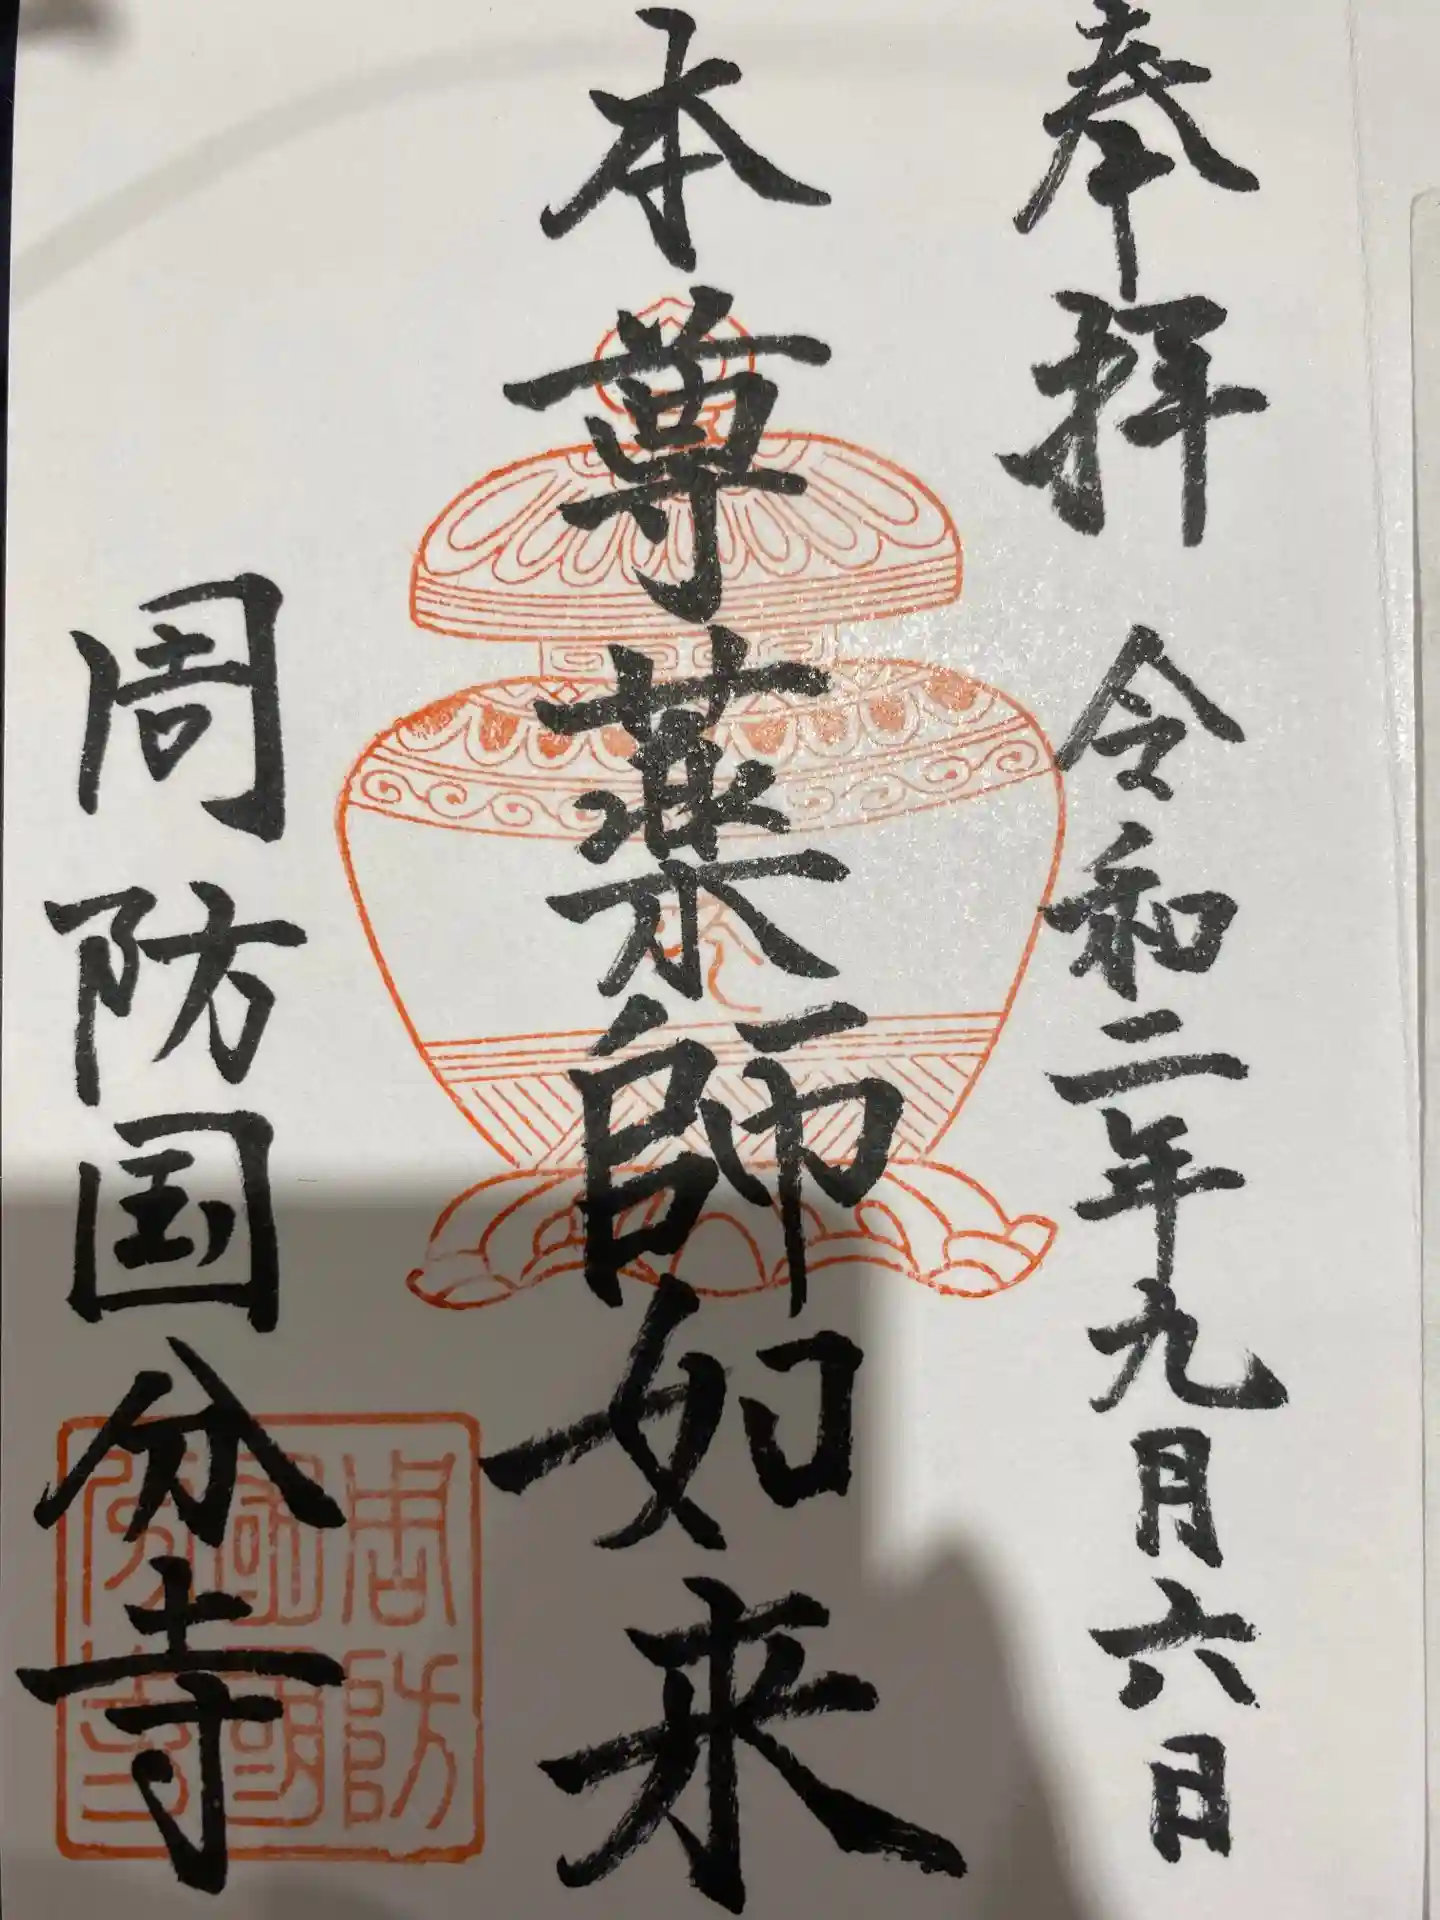 奉拝 令和二年九月六日
本尊薬師如来
周防国分寺
周防
國
分寺